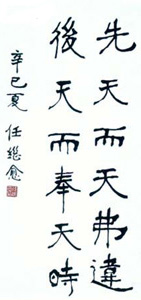 先天而天弗違
後天而奉天時
辛巳夏 任继愈